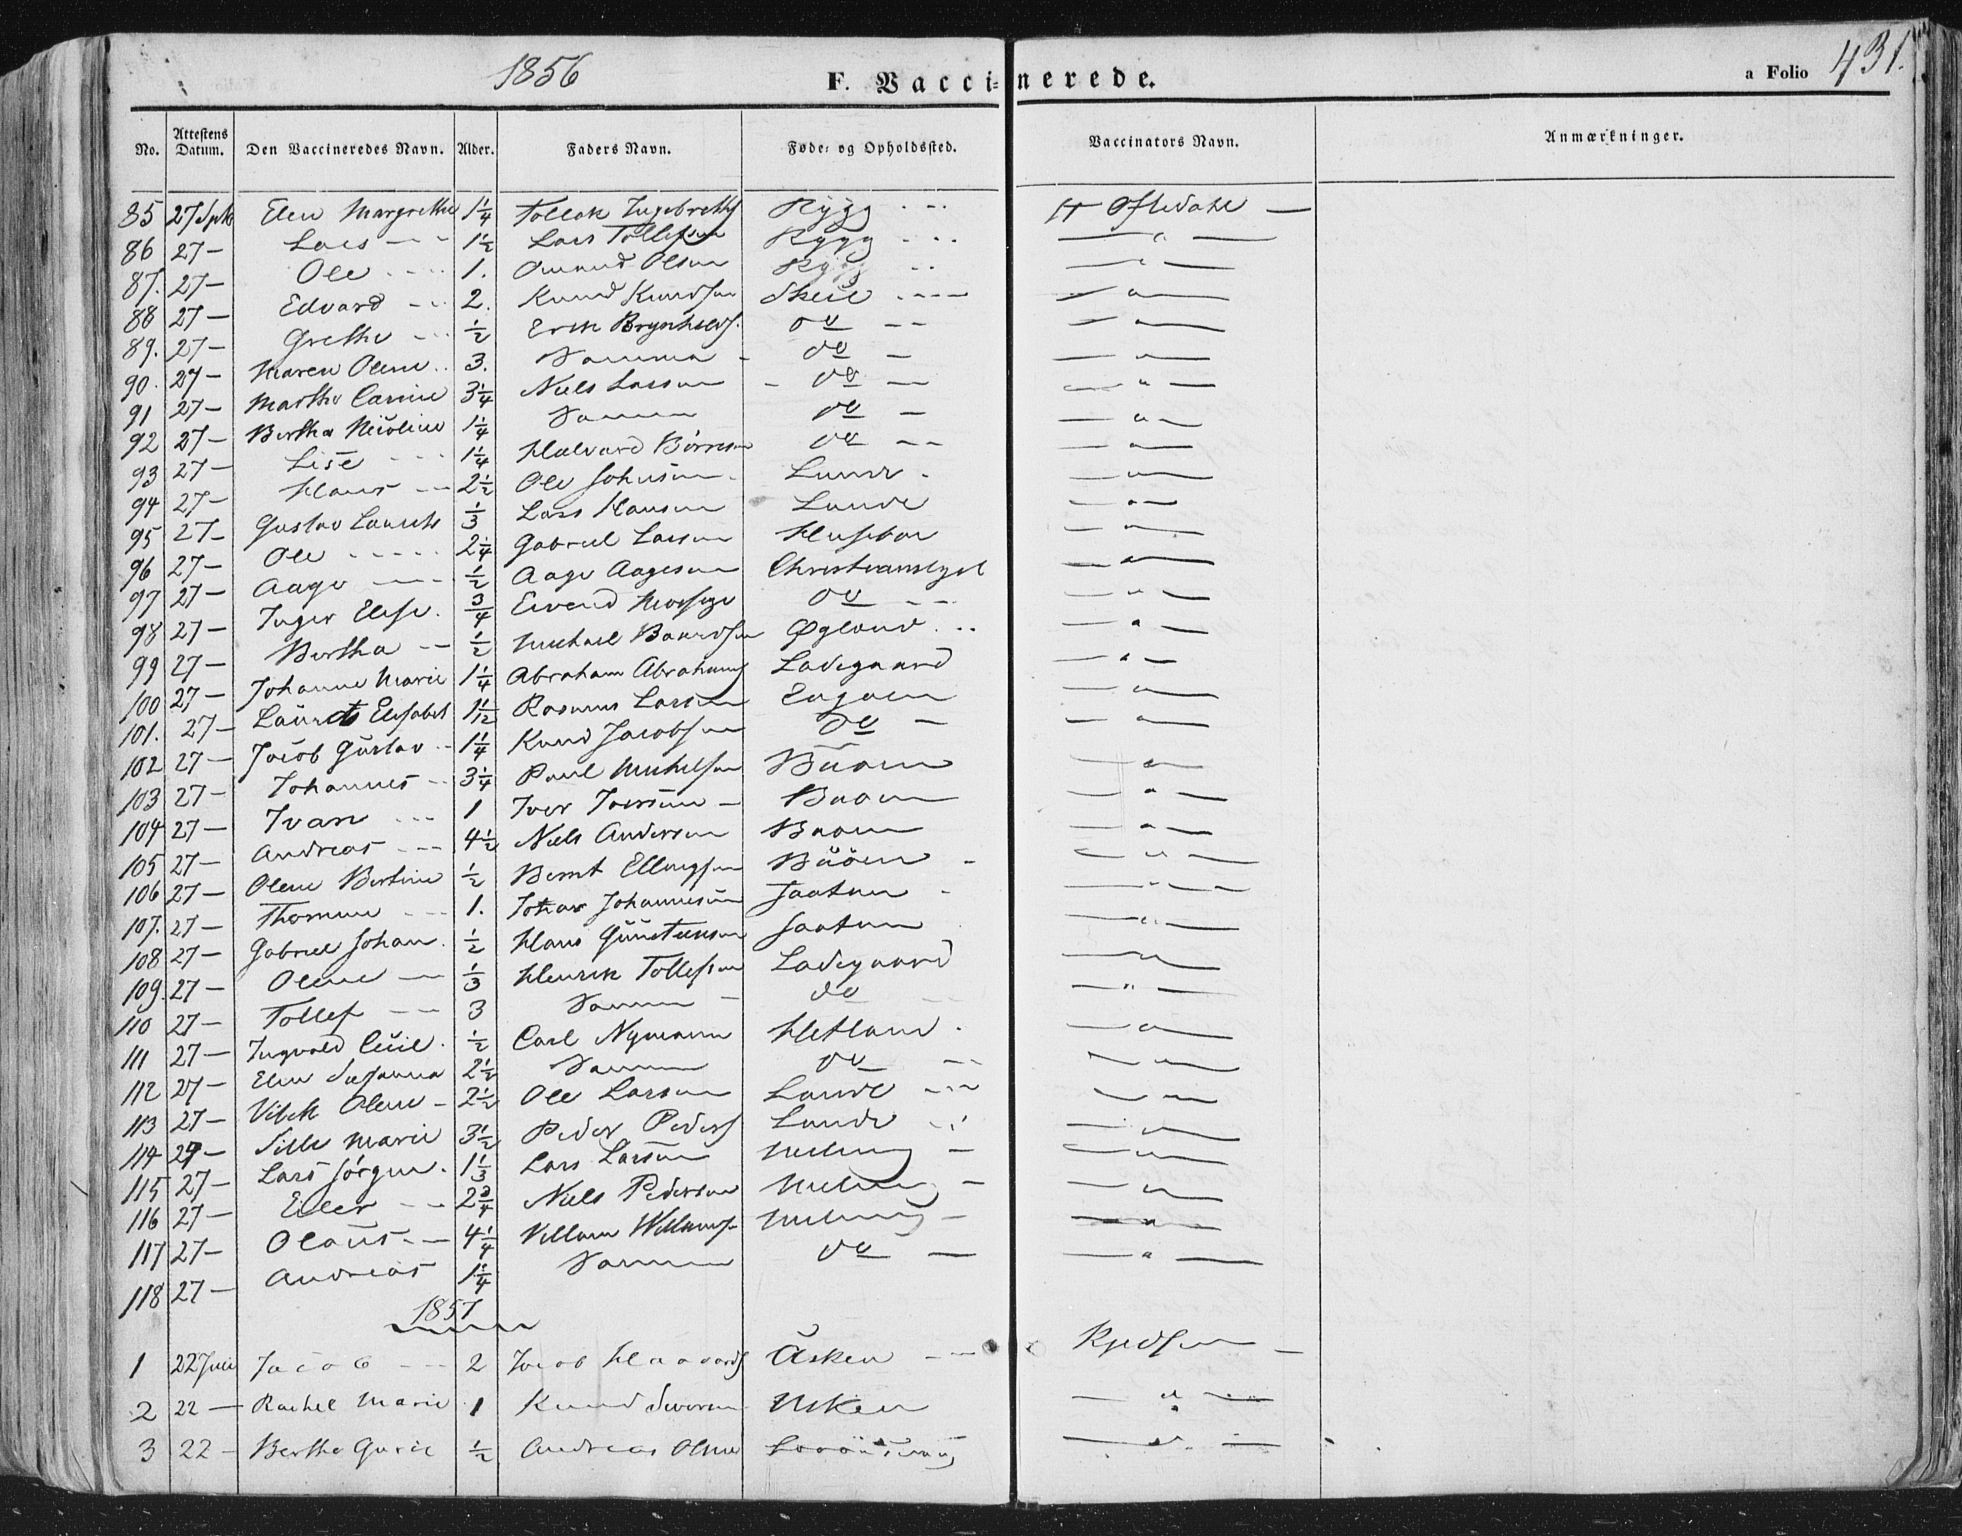 1856 F. Vaccinerede. a Folio 431.
No. Attestens Datum. Den Vaccineredes Navn. Alder. Faders Navn. Føde- og Opholdssted. Vaccinators Navn. Anmærkninger.
85 27 Sept Elen Margrethe 1 1/4 Tollak Ingebreths Rygg - - - H Oftedahl —
86 27 — Lars - - 1 1/2 Lars Tollefsen Rygg - - - — " —
87. 27 — Ole - - - - 1. Amund Olsen Rygg - - — " —
88 27 — Edvard - - 2. Knud Knudsen Skeie - - - - — " —
89. 27 — Grethe - - 1/2 Erik Brynhilds. do - - — " —
90. 27 — Maren Olene . . 3. Samme - do — — " —
91 27 — Martha Carine 3 1/4 Niels Larsen - do — — " —
92 27 — Bertha Nicoline 1 1/4 Samme do — — " —
93 27 — Lise - - - 1 1/4 Halvard Børresen do - - — " —
94 27 — Hans - - 2 1/2 Ole Johnsen . Lunde . — " —
95 27 — Gustav Laurits 1/3 Lars Hansen Lunde — " —
96 27 — Ole - - - - - 2 1/4 Gabriel Larsen Husebøe — " —
97 27 — Aage - - - 1/2 Aage Aagesen Christianslyst — " —
98 27 — Inger Elise . 3/4 Eivend do - - — " —
99 27 — Bertha - - 1/2 Michael Baardsen Øglend . . . — " —
100 27 — Johanne Marie 1 1/4 Abraham Abrahams Ladegaard — " —
101. 27 — Laurits Elisabet 1 1/12 Rasmus Larsen Engøen — " —
102 27 — Jacob Gustav . - 1 1/4 Knud Jacobsen do — — " —
103 27 — Johannes - - 3 1/4 Paul Michelsen Buøen — " —
104 27 — Ivar - - - 1 Iver Iversen - Buøen — " —
105 27 — Andreas - - - 4 1/2 Niels Andersen Buøen — " —
106 27 — Olene Bertine 1/2 Bernt Ellingsen Buøen - — " —
107. 27 — Thomine - - - 1. Johan Johannesen Jaatun - — " —
108 27 — Gabriel Johan . 1/2 Hans Jaatun — " —
109. 27 — Olene - - 1/3 Henrik Tollefsen Ladegaard — " —
110 27 — Tollef - - - 3 Samme - do — " —
111 27 — Ingvald Cecil . 1/2 Carl Nymann Hetland . — " —
112 27 — Elen Susanna 2 1/2 Samme do - - — " —
113 27 — Olene - 2 1/2 Ole Larsen Lunde - - - — " —
114 27 — Sille Marie 3 1/2 Peder Peders Lunde - . ! — " —
115 27 — Lars Jörgen . 1 1/3 Lars Larsen — — " —
116 27 — Eiler - - - 2 3/4 Niels Pedersen — — " —
117 27 — Olaus - - 4 1/4 Villum Willumsen — — " —
118 27 — Andreas 1 1/4 Samme do — — " —
1857
1 22 Juli Jacob - - - 2 Jacob Haavards Åsken - - - —
2 22 — Rachel Marie 1 Knud Siversen Usken — " —
3 22 — Bertha Gurie 1/2 Andreas Olsen — " —